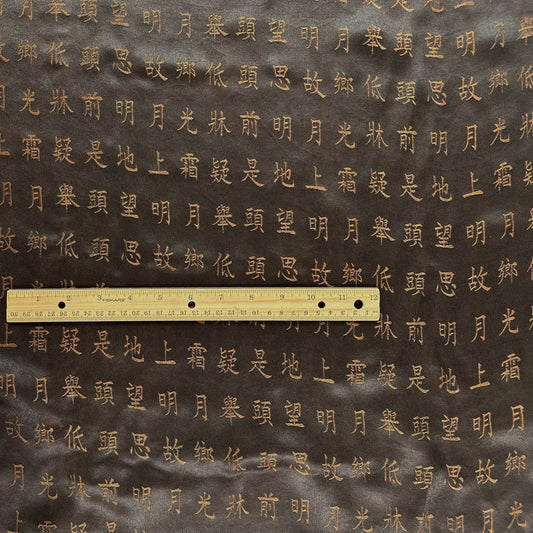 舉頭望明月舉頭望明月舉頭望明月舉
故鄉低頭思故鄉低頭思故鄉低頭思故鄉低
月光牀前明月光牀前明月光牀前明月光牀
上霜疑是地上霜疑是地上霜疑是地上霜疑
明月舉頭望明月舉頭望明月舉頭望明月舉
故鄉低頭思故鄉低頭思故鄉低頭思故鄉低
1 2 3 4 5 6 7 8 9 10 11 12
前明月光
霜疑是地上霜疑是地上霜疑是地上霜
明月舉頭望明月舉頭望明月舉頭望明月
故鄉低頭思故鄉低頭思故鄉低頭思故鄉
月光牀前明月光牀前明月光牀前明月光